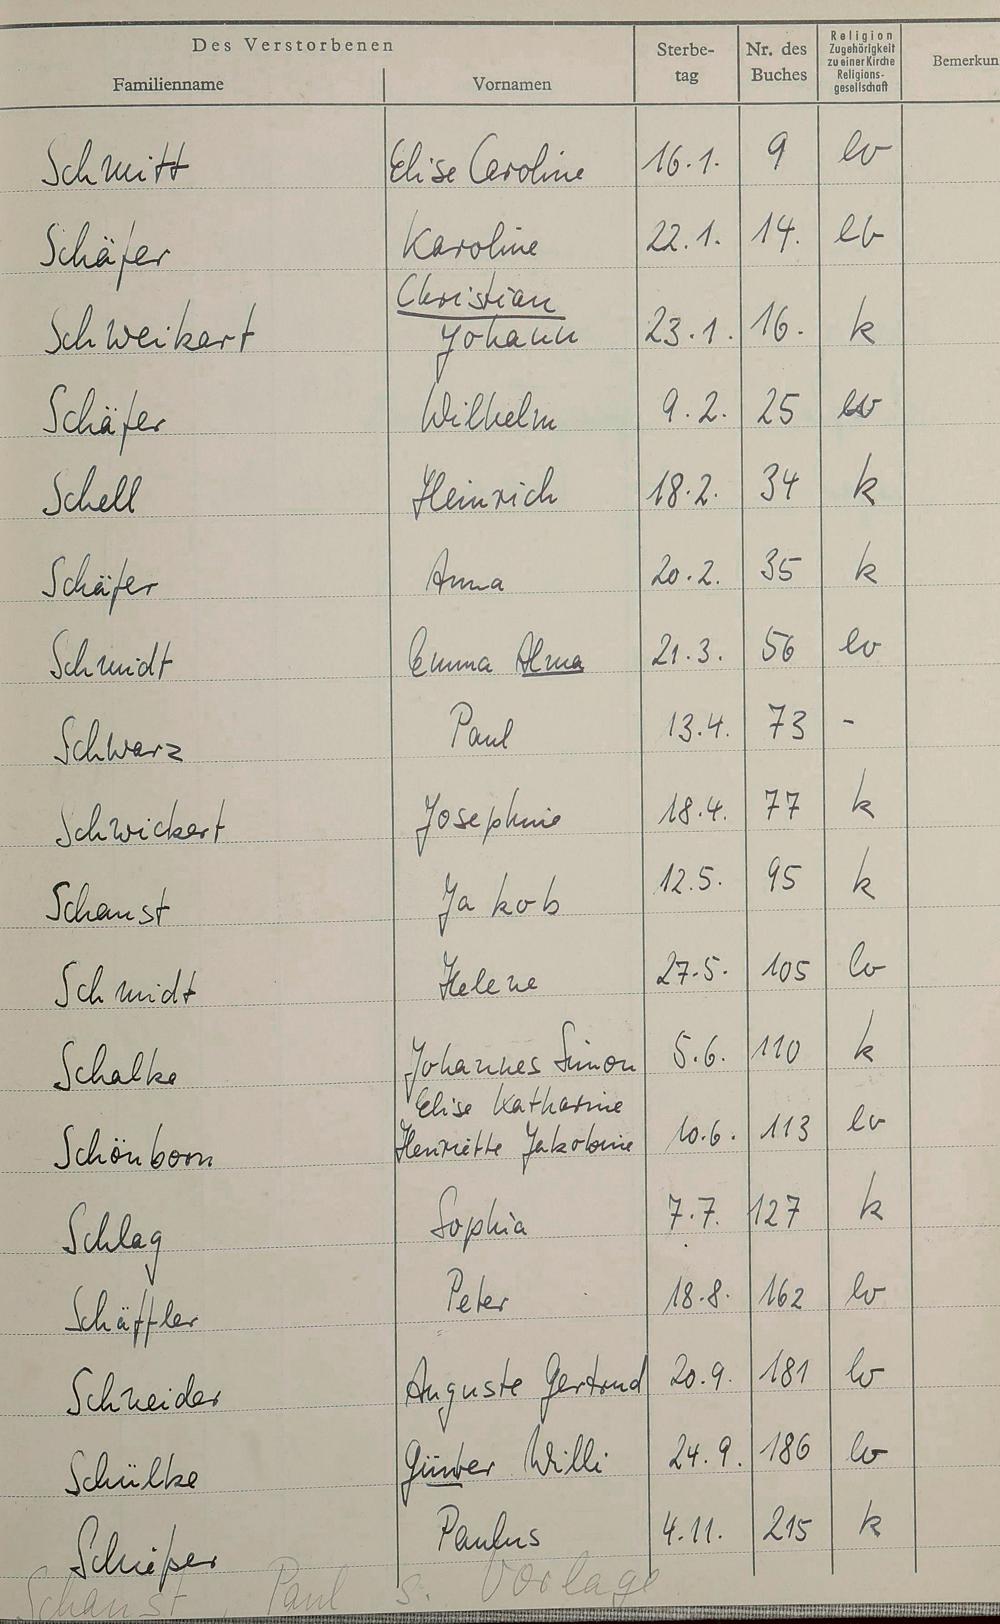 Des Verstorbenen
Familienname Vornamen Sterbe-tag Nr. des Buches Religion Zugehörigkeit zu einer Kirche Religions-gesellschaft Bemerkun
Schmitt Elise Caroline 16.1. 9 ev
Schäfer Karoline 22.1. 14. ev
Christian
Schweikart Johann 23.1. 16. k
Schäfer Wilhelm 9.2. 25 ev
Schell Heinrich 18.2. 34 k
Schäfer Anna 20.2. 35 k
Schmidt Emma Alma 21.3. 56 ev
Schwarz Paul 13.4. 73 -
Schwickert Josephine 18.4. 77 k
Schanst Jakob 12.5. 95 k
Schmidt Helene 27.5. 105 ev
Schalke Johannes Simon 5.6. 110 k
Elise Katharine
Schönborn Henriette Jakobine 10.6. 113 ev
Schlag Sophia 7.7. 127 k
Schäffler Peter 18.8. 162 ev
Schneider Auguste Gertrud 20.9. 181 ev
Schülke Günter Willi 24.9. 186 ev
Paulus 4.11. 215 k
Schanst, Paul s. Vorlage